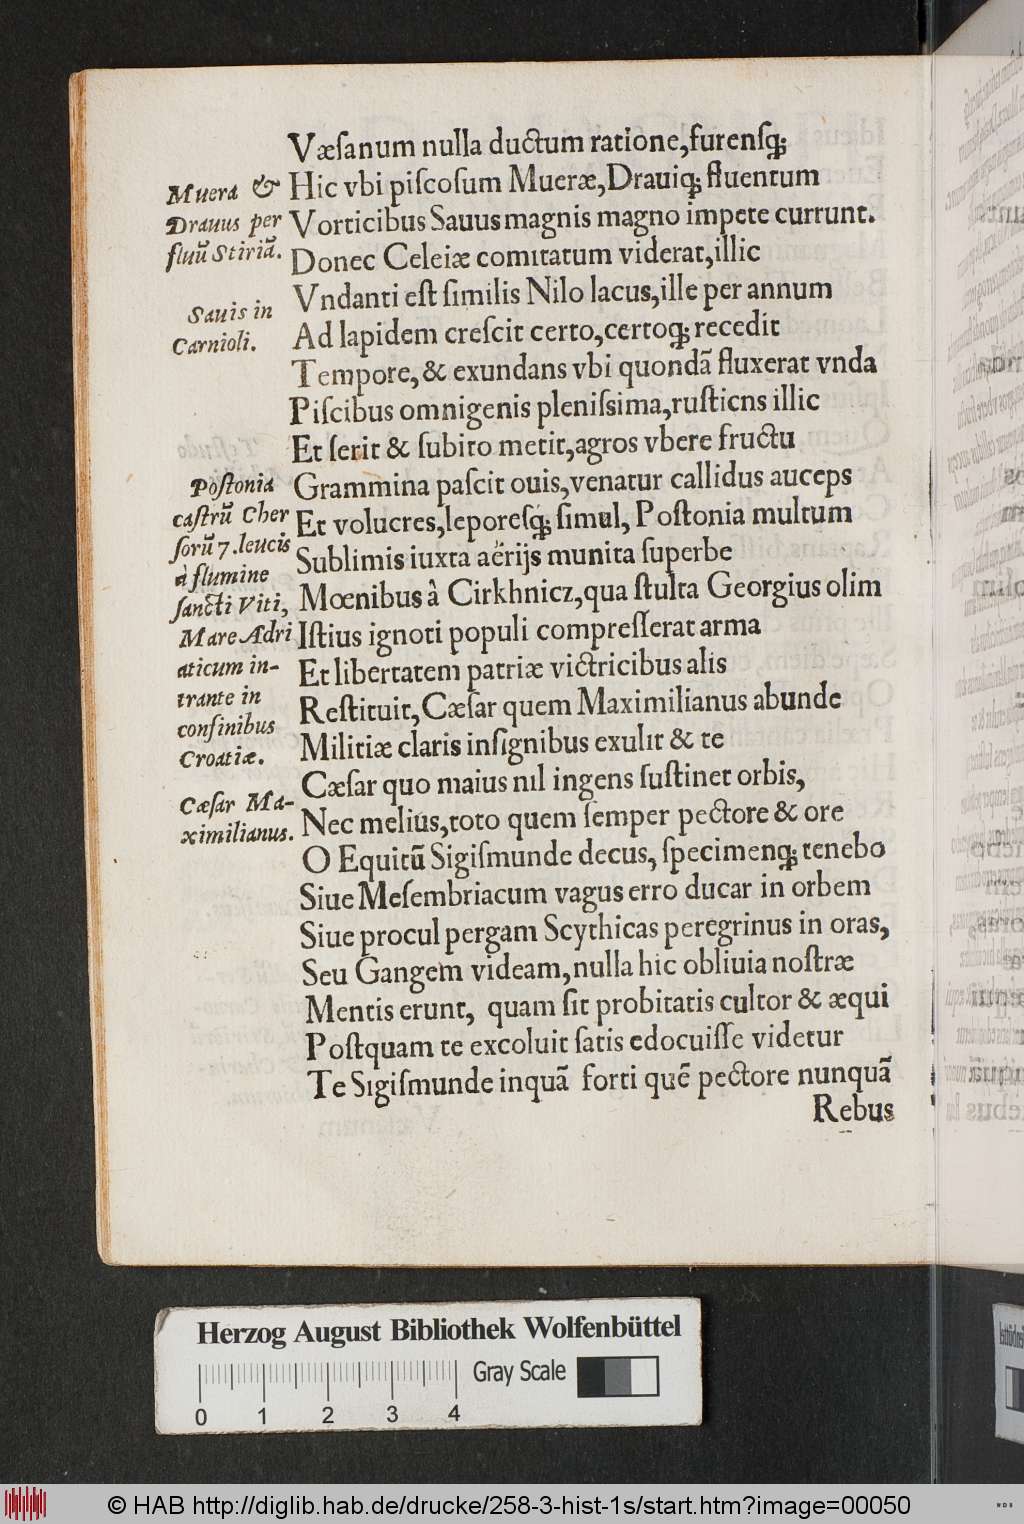 Væſanum nulla ductum ratione,furenſq;
Hic vbi piſcoſum Mueræ,Drauiq; fluentum
Vorticibus Sauus magnis magno impete currunt.
Donec Celeiæ comitatum viderat,illic
Vndanti eſt ſimilis Nilo lacus,ille per annum
Ad lapidem creſcit certo,certoq; recedit
Tempore, & exundans vbi quondã fluxerat vnda
Piſcibus omnigenis pleniſsima,ruſticns illic
Et ſerit & ſubito metit,agros vbere fructu
Grammina paſcit ouis,venatur callidus auceps
Et volucres,leporeſq; ſimul, Poſtonia multum
Sublimis iuxta aërijs munita ſuperbe
Mœnibus à Cirkhnicz,qua ſtulta Georgius olim
Iſtius ignoti populi compreſſerat arma
Et libertatem patriæ victricibus alis
Reſtituit,Cæſar quem Maximilianus abunde
Militiæ claris inſignibus exulit & te
Cæſar quo maius nil ingens ſuſtinet orbis,
Nec melius,toto quem ſemper pectore & ore
O Equitũ Sigiſmunde decus, ſpecimenq; tenebo
Siue Meſembriacum vagus erro ducar in orbem
Siue procul pergam Scythicas peregrinus in oras,
Seu Gangem videam,nulla hic obliuia noſtræ
Mentis erunt, quam ſit probitatis cultor & æqui
Poſtquam te excoluit ſatis edocuiſſe videtur
Te Sigiſmunde inquã forti quẽ pectore nunquã
Rebus
Muera &
Drauus per
fluũ Stiriã.
Sauis in
Carnioli.
Poſtonia
caſtrũ Cher
ſorũ 7.leucis
à flumine
ſancti Viti,
Mare Adri
aticum in-
trante in
confinibus
Croatiæ.
Cæſar Ma-
ximilianus.
Herzog August Bibliothek Wolfenbüttel
Gray Scale
0 1 2 3 4
© HAB http://diglib.hab.de/drucke/258-3-hist-1s/start.htm?image=00050